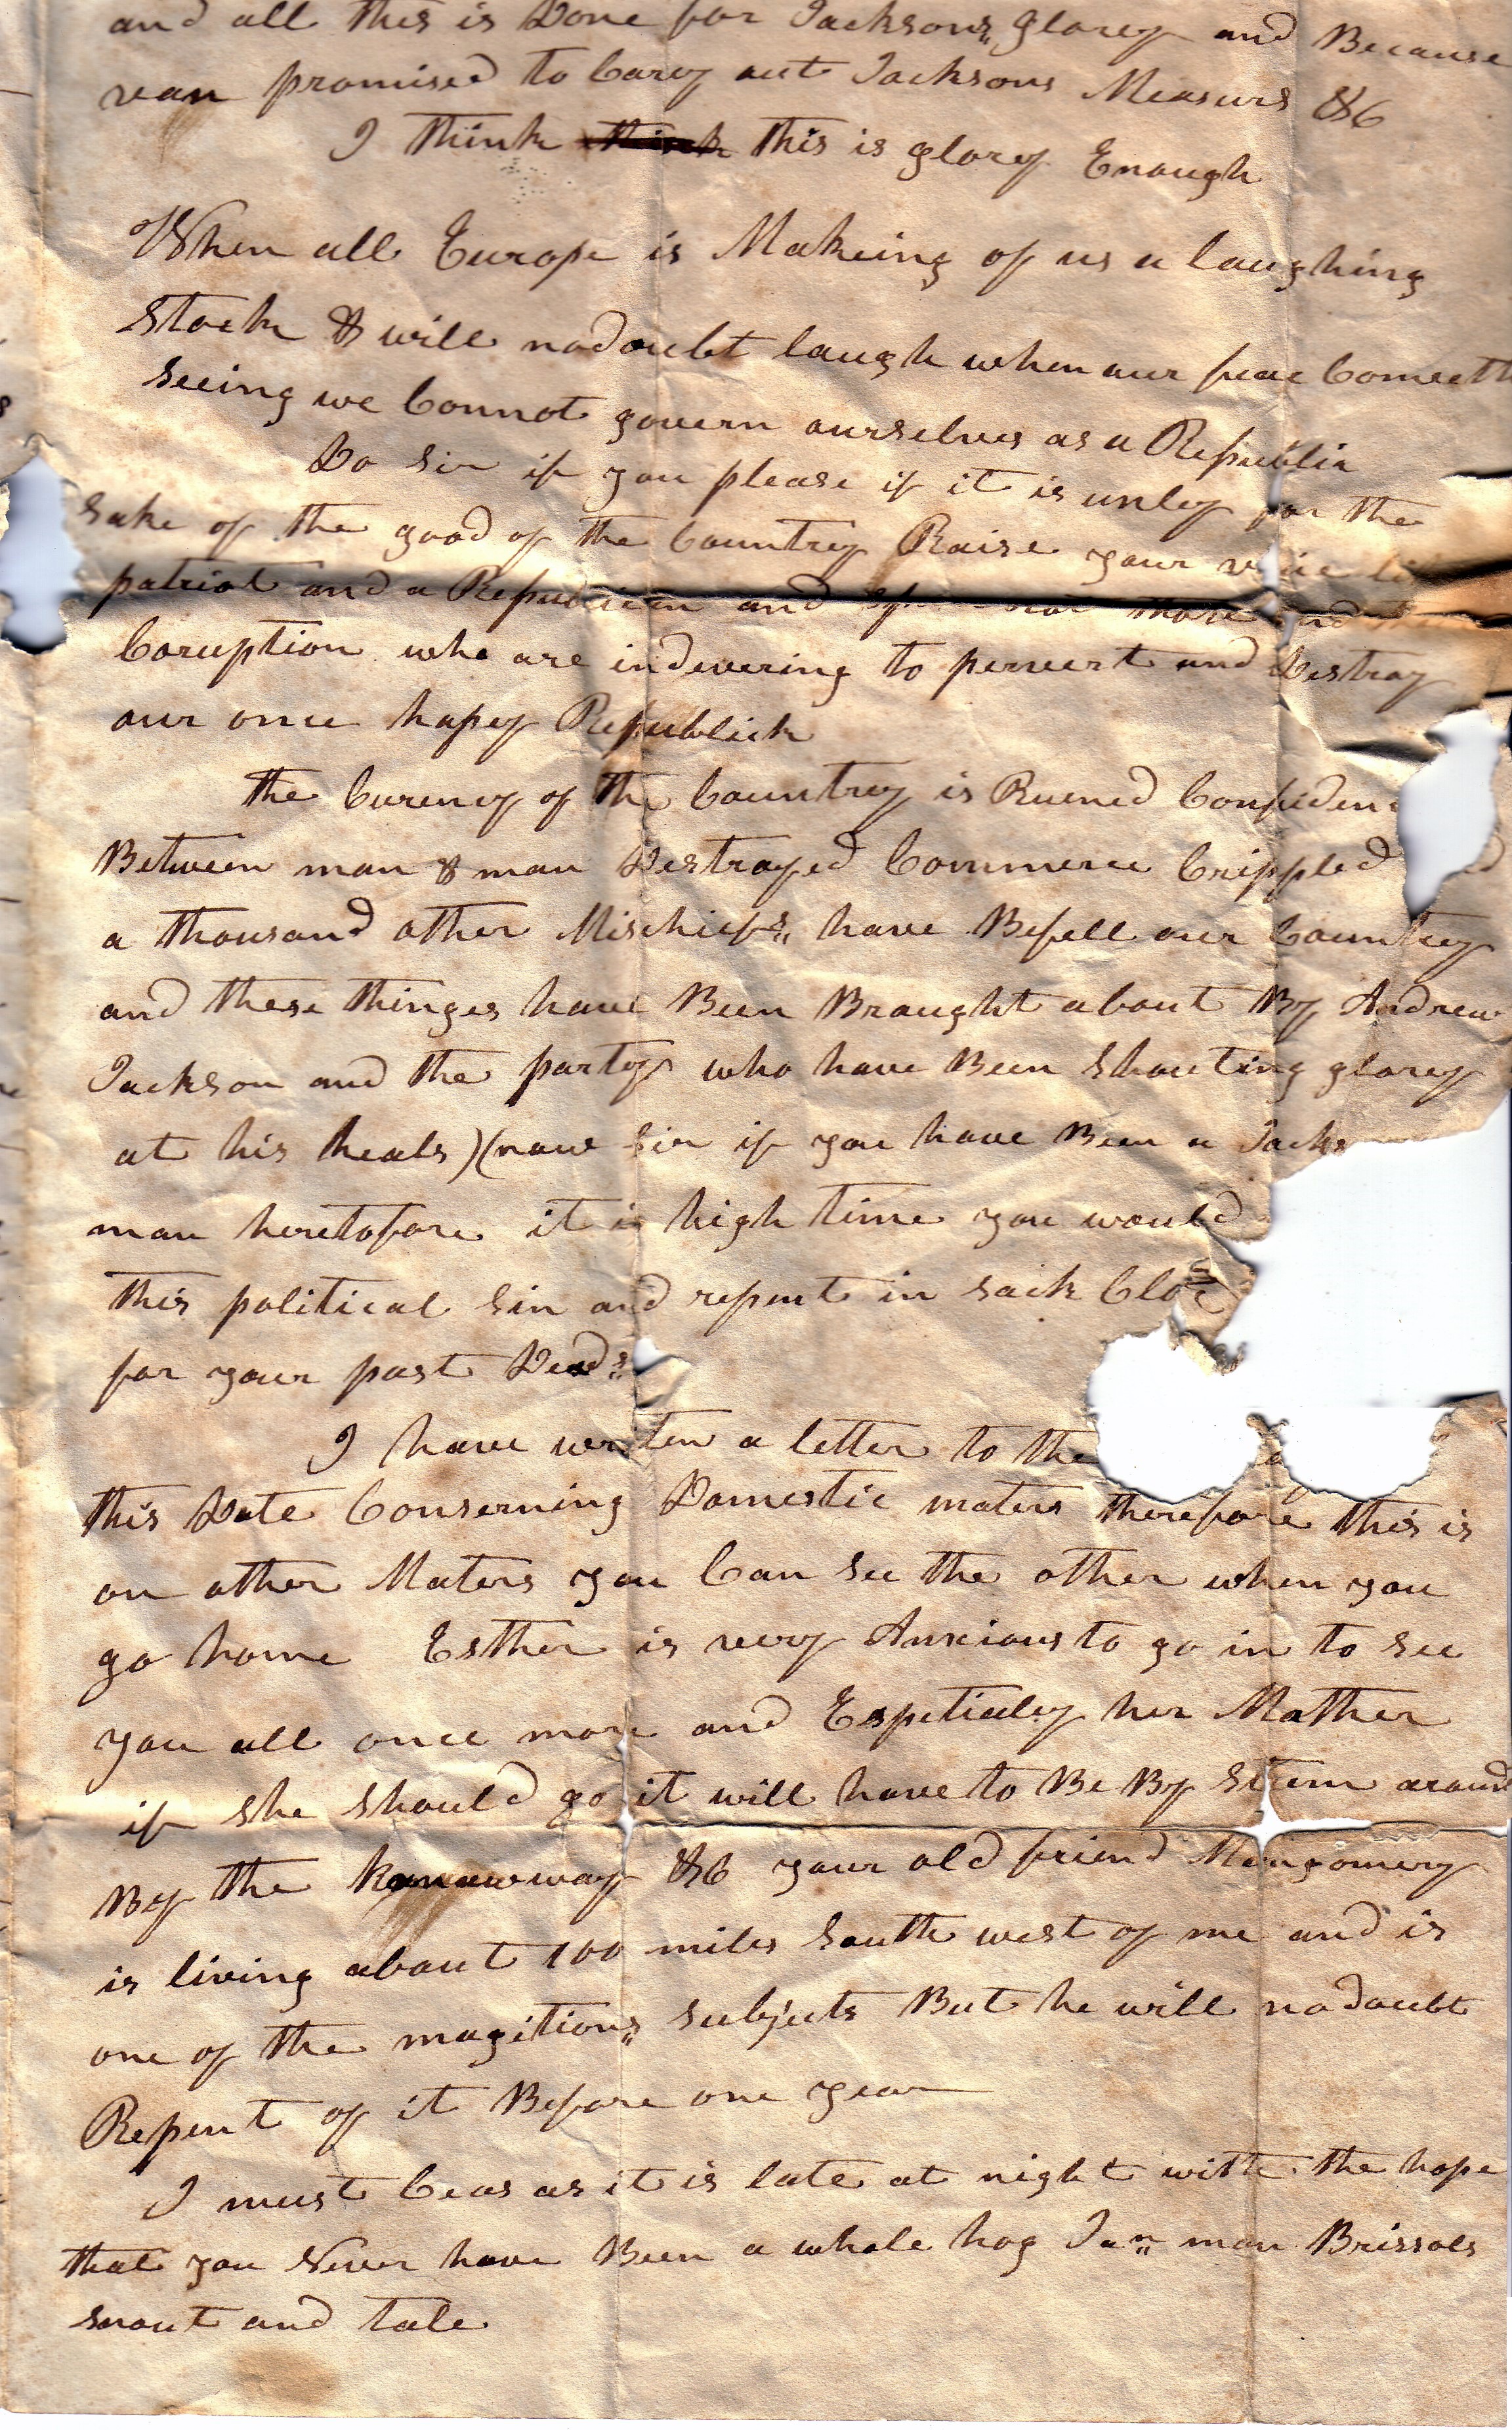 and all this is Done for Jacksons glorey and Because
van promised to Cary out Jacksons Measurs &C
I think think this is glory Enough
When all Europe is Makeing of us a laughing
Stock & will nodoubt laugh when our fear Cometh
Seeing we Connot govern ourselves as a Republic
Do Sir if you please if it is unley for the
Sake of the good of the Country Raise your voice
patriot and a Republican and not those
Coruption who are indevering to pervert and Destroy
our once hapey Republick
the Curency of the Country is Ruened Confiden
Between man & man Destroyed Commerce Crippled
a thousand other Mischiefs have Befell our Country
and these thinges have Been Braught about By Andrew
Jackson and the party who have Been Shouting glorey
at his heals) (now Sir if you have Been a Jacks
man heretofore it is high time you would
this political Sin and repent in sack Clo
for your past Deeds
I have writen a letter to the
this Date Conserning Domestic maters therefore this is
on other Maters you Can See the other when you
go home Esther is very Anxious to go in to see
you all once more and Espetialey her Mother
if she should go it will have to Be By Steem around
By the Kanawway &C your old friend Mongomery
is living about 100 miles South west of me and is
one of the magitions subjects But he will nodoubt
Repent of it Before one year
I must Ceas as it is late at night with the hope
that you Never have Been a whole hog Jan man Brissols
snout and tale